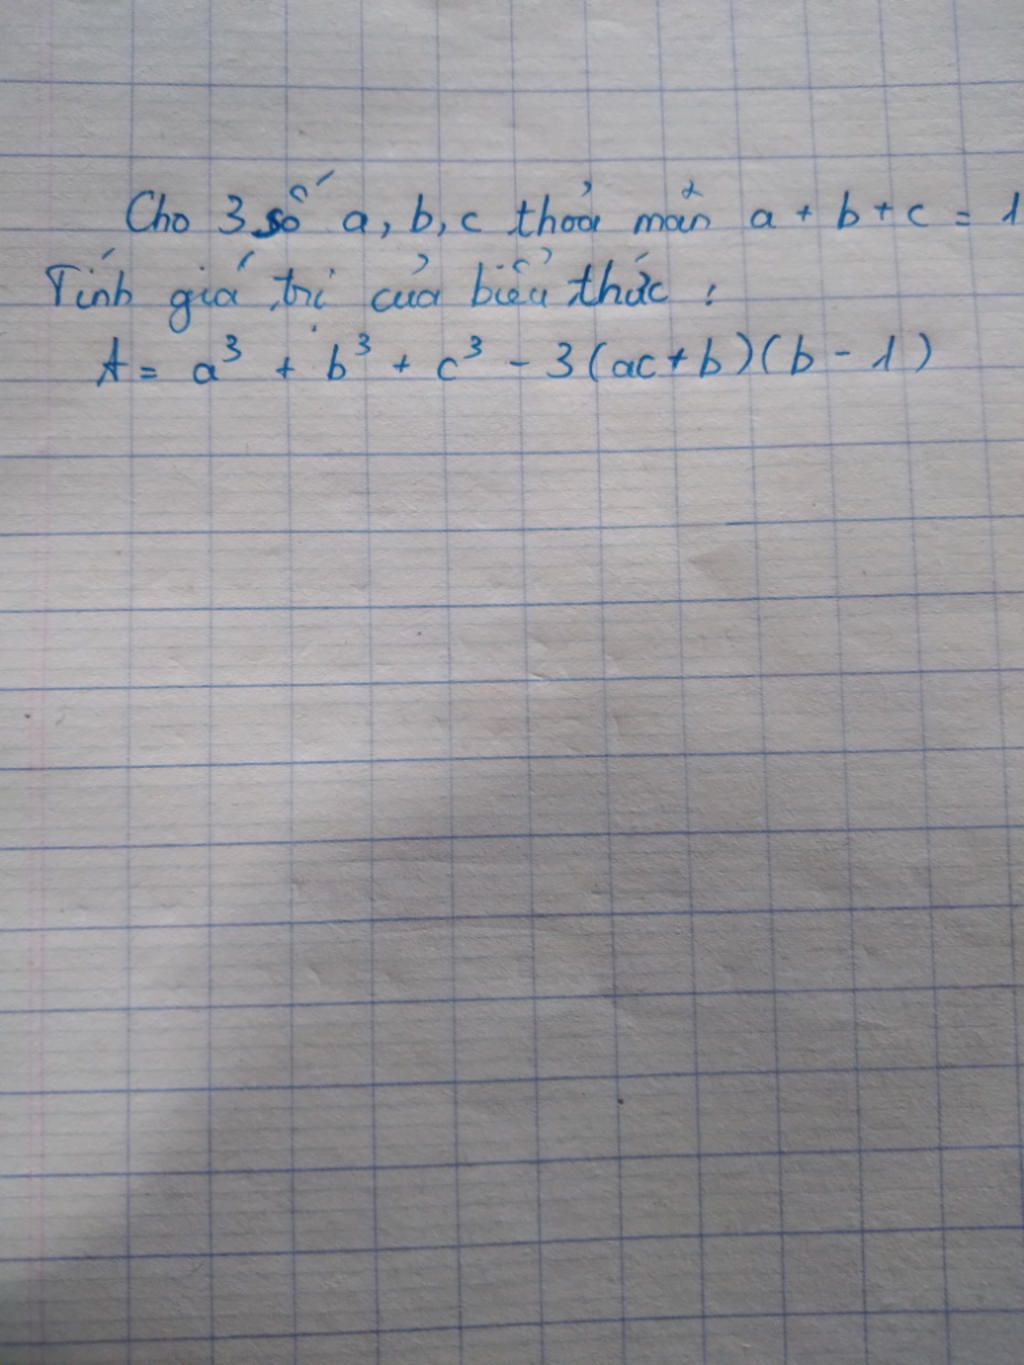 Cho 3 số a, b, c thoả mãn a + b + c = 1
Tính giá trị của biểu thức :
A = a³ + b³ + c³ - 3(ac+b)(b - 1)